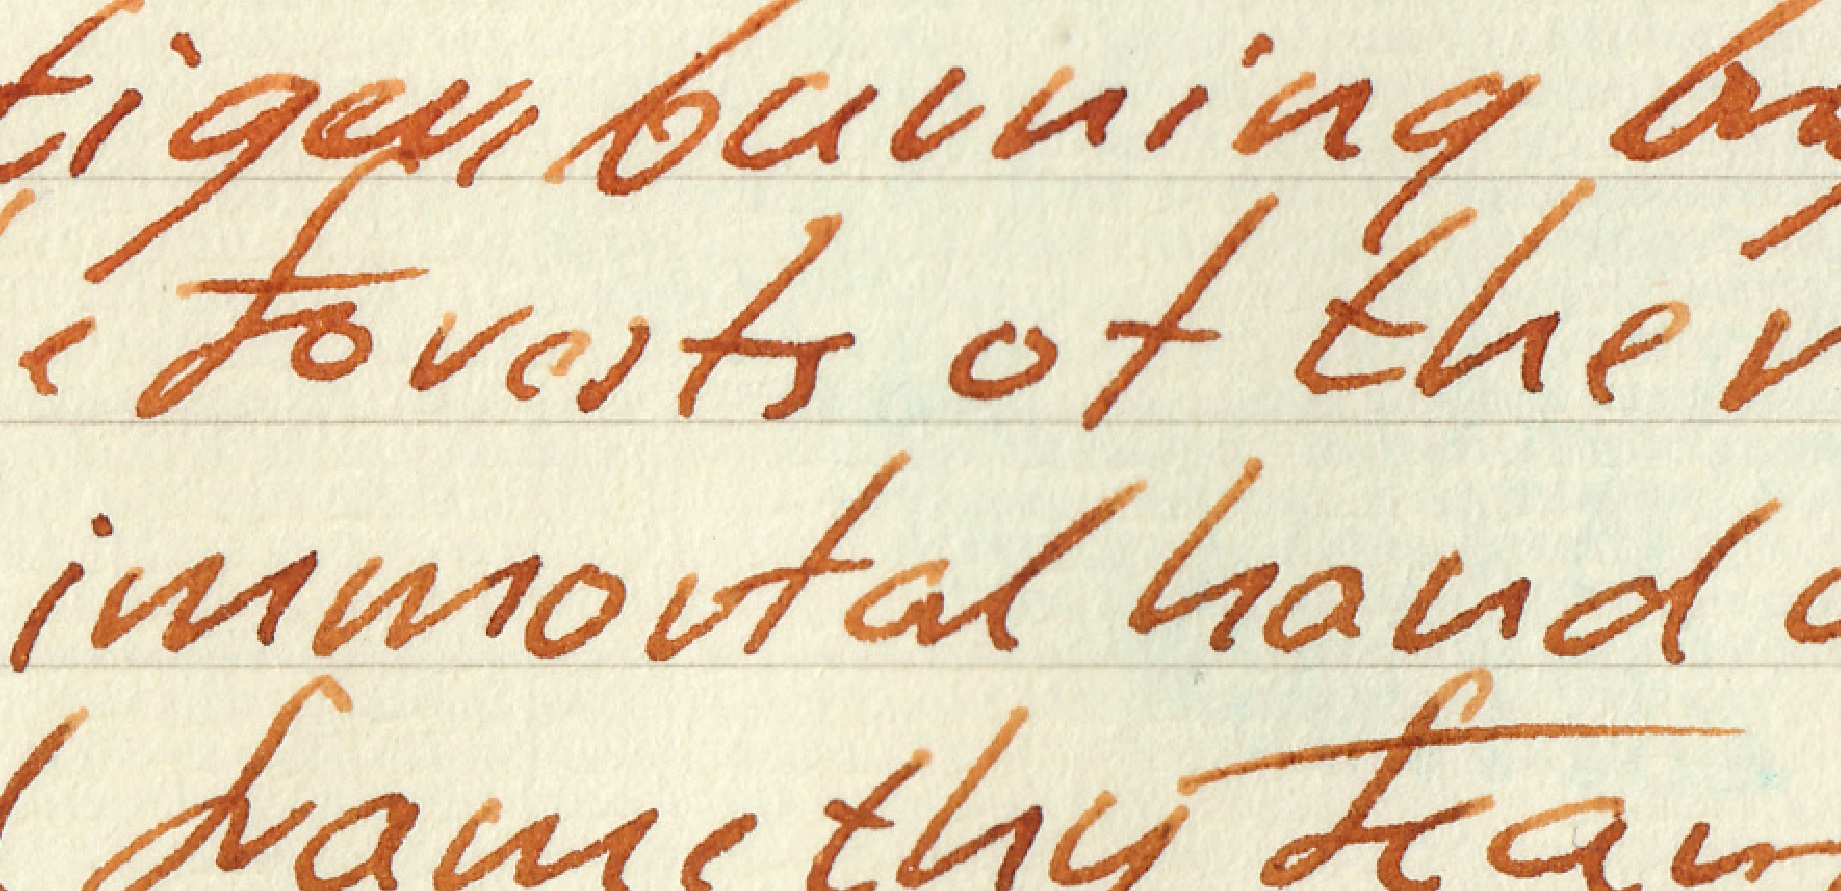 tiger, burning br
e forests of the n
immortal hand o
frame thy fear